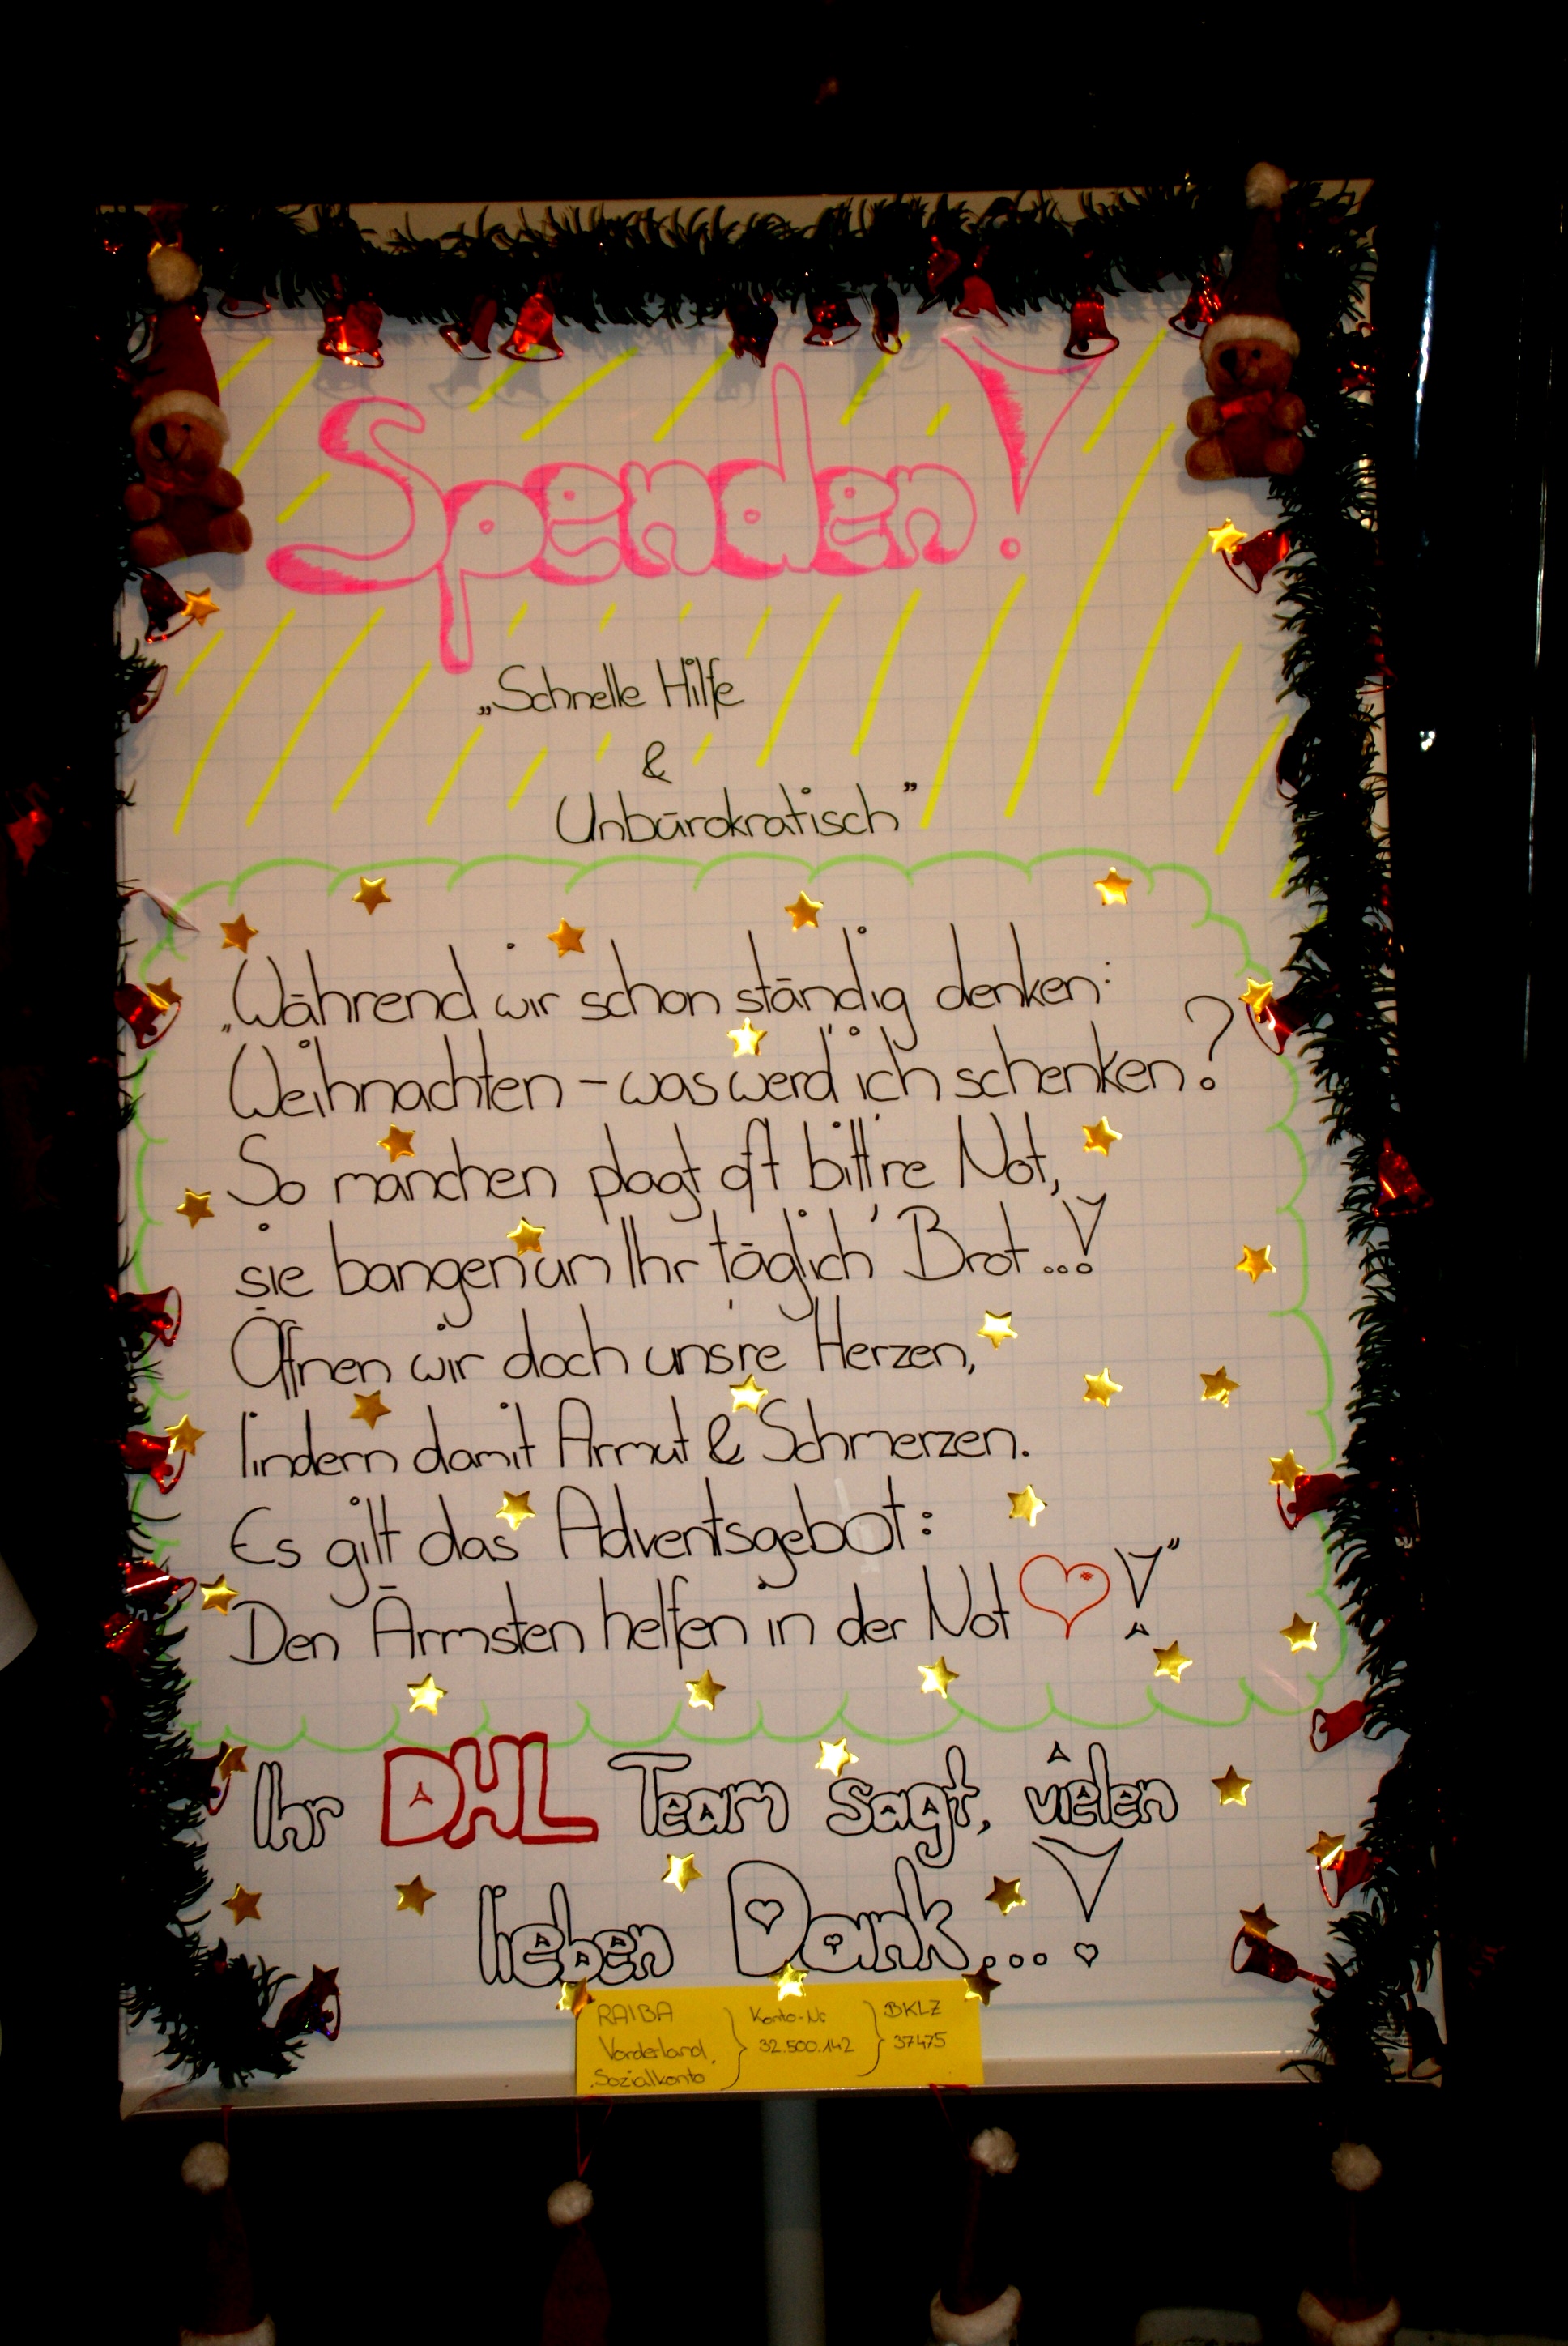 Spenden!
„Schnelle Hilfe
&
Unbürokratisch”
„Während wir schon ständig denken:
Weihnachten – was werd' ich schenken?
So manchen plagt oft bitt're Not,
sie bangen um Ihr täglich' Brot...!
Öffnen wir doch uns're Herzen,
lindern damit Armut & Schmerzen.
Es gilt das Adventsgebot:
Den Ärmsten helfen in der Not ♡!”
Ihr DHL Team sagt, vielen
lieben Dank...!
RAIBA } Konto-Nr } BKLZ
Vorderland, 32.500.142 37475
Sozialkonto